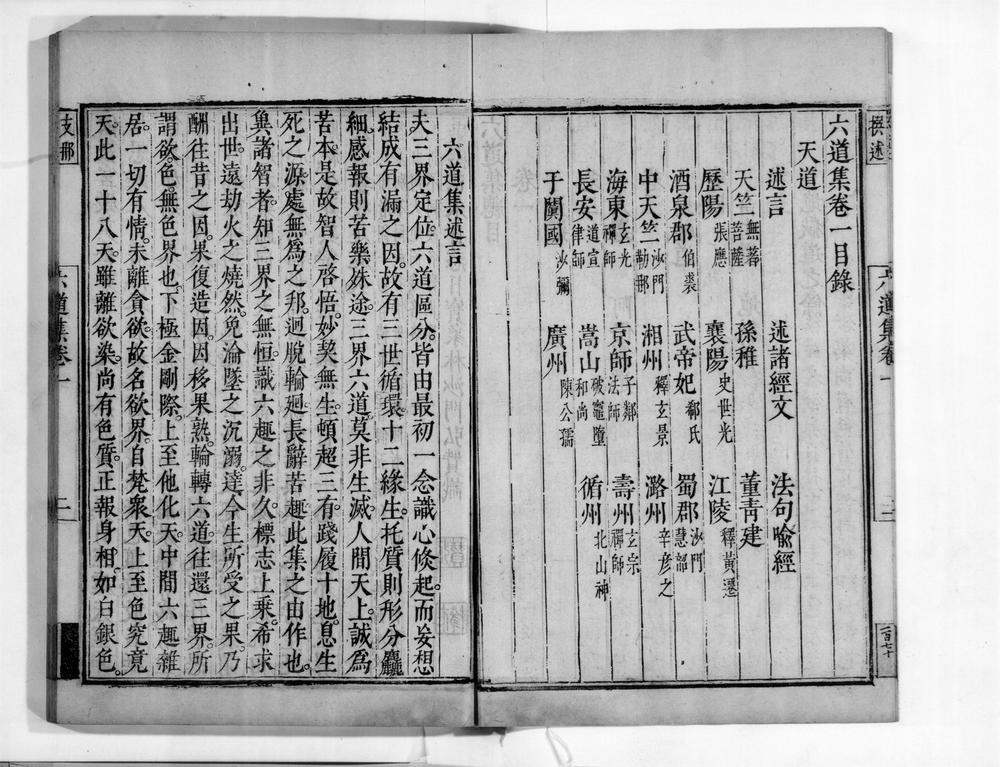 撰述
六道集卷一
二
六道集卷一目錄
天道
述言 述諸經文 法句喻經
天竺無著菩薩 孫稚 董青建
歷陽張應 襄陽史世光 江陵釋黃遷
酒泉郡伯裘 武帝妃郗氏 蜀郡沙門慧韶
中天竺沙門勒那 湘州釋玄景 潞州辛彥之
海東玄光禪師 京師子鄰法師 壽州玄宗禪師
長安道宣律師 嵩山破竈墮和尚 循州北山神
于闐國沙彌 廣州陳公孺
六道集述言
夫三界定位。六道區分。皆由最初一念識心倐起。而妄想
結成有漏之因。故有三世循環。十二緣生。托質則形分麤
細。感報則苦樂殊途。三界六道。莫非生滅。人間天上。誠為
苦本。是故智人啓悟。妙契無生。頓超三有。踐履十地。息生
死之源。處無為之邦。迥脫輪廻。長辭苦趣。此集之由作也。
兾諸智者。知三界之無恒。識六趣之非久。標志上乘。希求
出世。遠劫火之燒然。免淪墜之沉溺。達今生所受之果。乃
酬往昔之因。果復造因。因移果熟。輪轉六道。往還三界。所
謂欲。色。無色界也。下極金剛際。上至他化天。中間六趣雜
居。一切有情。未離貪欲。故名欲界。自梵衆天。上至色究竟
天。此一十八天。雖離欲染。尚有色質。正報身相。如白銀色。
支那
六道集卷一
二